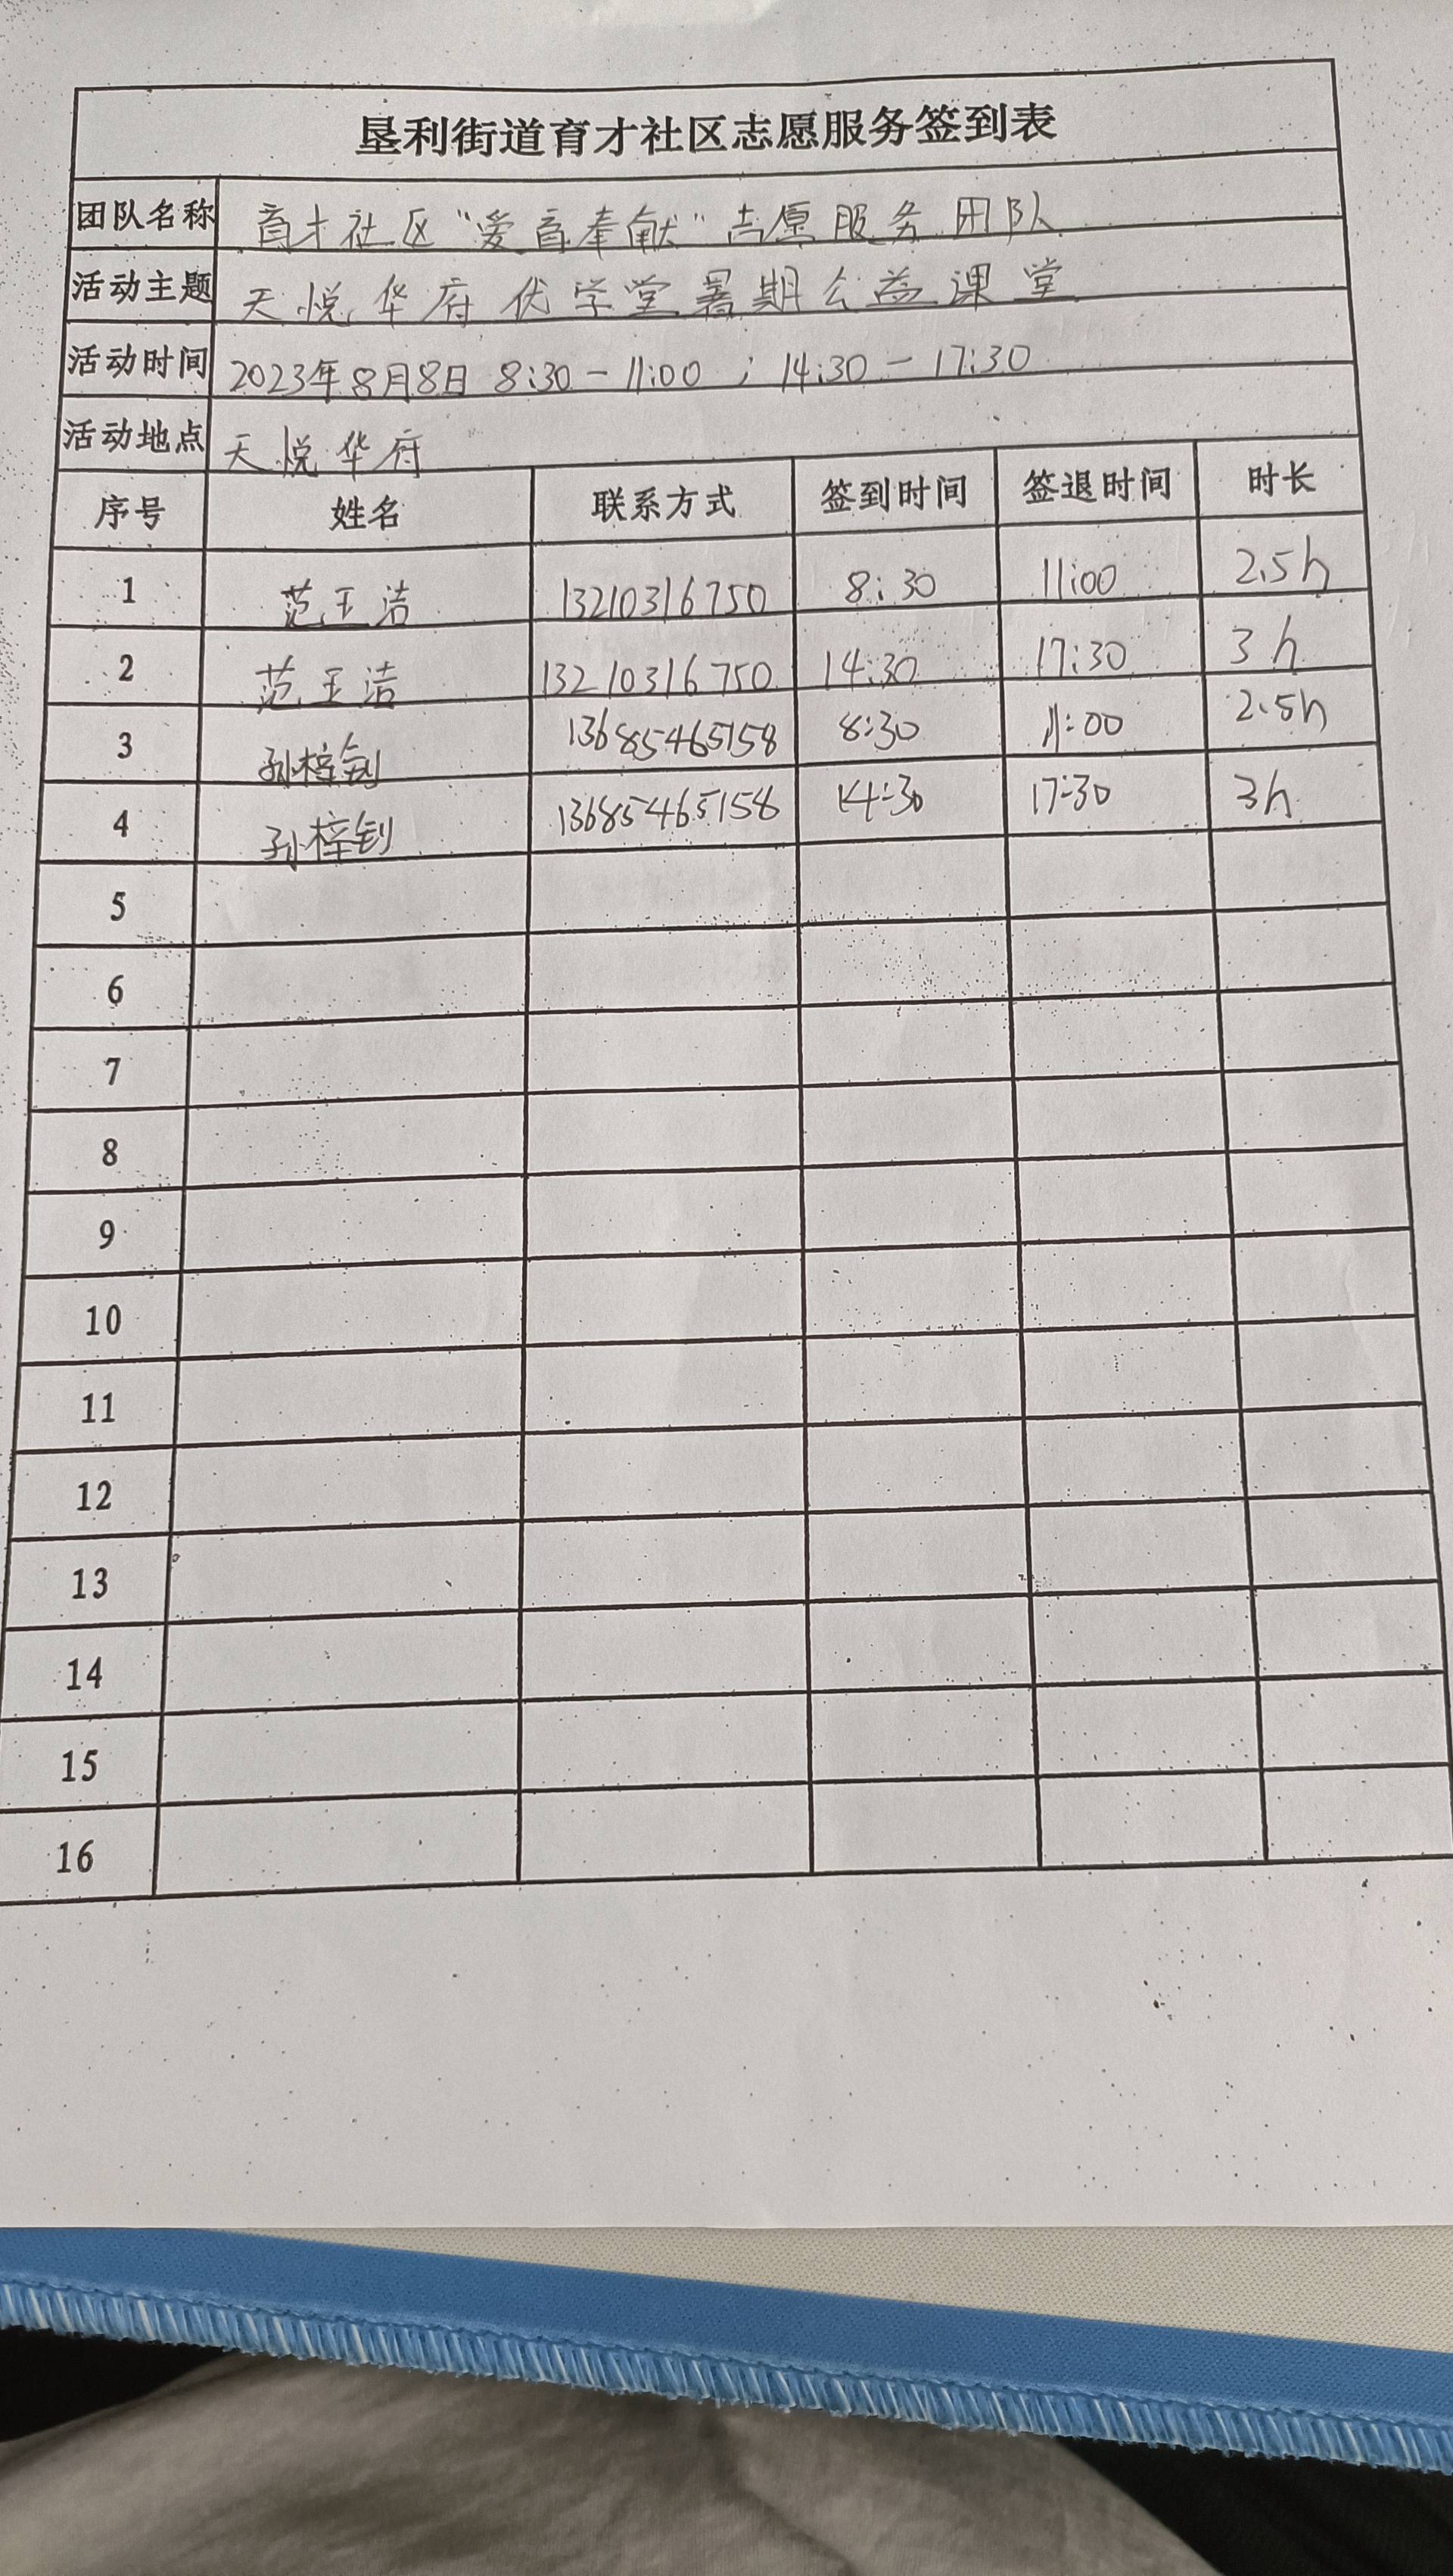 垦利街道育才社区志愿服务签到表
团队名称 育才社区“爱育奉献”志愿服务团队
活动主题 天悦华府伏学堂暑期公益课堂
活动时间 2023年8月8日 8:30-11:00；14:30-17:30
活动地点 天悦华府
序号 姓名 联系方式 签到时间 签退时间 时长
1 范玉洁 13210316750 8:30 11:00 2.5h
2 范玉洁 13210316750 14:30 17:30 3h
3 孙梓钊 13685465158 8:30 11:00 2.5h
4 孙梓钊 13685465158 14:30 17:30 3h
5
6
7
8
9
10
11
12
13
14
15
16